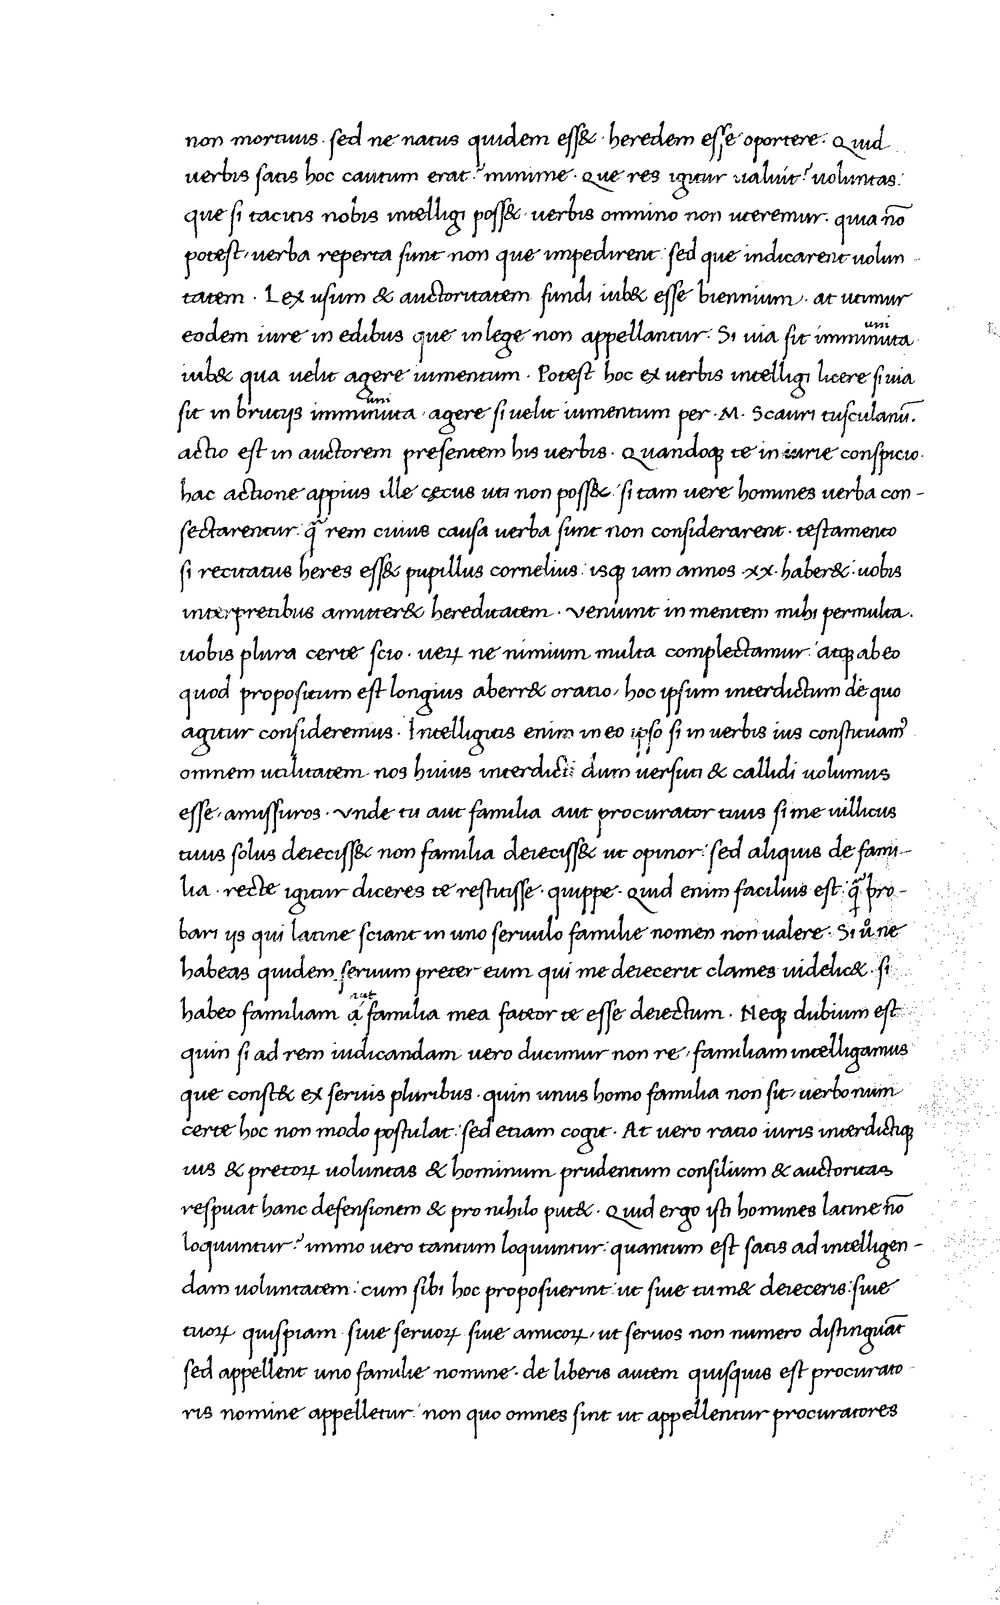 non mortuus. sed ne natus quidem ess&. heredem esse oportere. Quid
uerbis satis hoc cautum erat? minime. Que res igitur ualuit? uoluntas:
que si tacitis nobis intelligi poss& uerbis omnino non uteremur. quia nō
potest, uerba reperta sunt non que impedirent: sed que indicarent uolun-
tatem. Lex usum & auctoritatem fundi iub& esse biennium. at utimur
eodem iure in edibus que in lege non appellantur. Si uia sit imminuta
uni
iub& qua uelit agere iumentum. Potest hoc ex uerbis intelligi licere si uia
sit in brutiis imminuta, agere si uelit iumentum per. M. Scauri tusculanū.
uni
actio est in auctorem presentem his uerbis. Quandoqꝫ te in iurie conspicio.
hac actione appius ille cęcus uti non poss&: si tam uere homines uerba con-
sectarentur: q̄ rem cuius causa uerba sunt non considerarent. testamento
si recitatus heres ess& pupillus cornelius: isqꝫ iam annos .xx. haber&: uobis
interpretibus amitter& hereditatem. Veniunt in mentem mihi permulta.
uobis plura certe scio. ueꝝ ne nimium multa complectamur: atqꝫ ab eo
quod propositum est longius aberr& oratio, hoc ipsum interdictum de quo
agitur consideremus. Intelligitis enim in eo ipso si in uerbis ius constituamꝰ
omnem utilitatem nos huius interdicti dum uersuti & callidi uolumus
esse, amissuros. Vnde tu aut familia aut procurator tuus si me uillicus
tuus solus deieciss& non familia deieciss& ut opinor: sed aliquis de fami-
lia. recte igitur diceres te restitisse. quippe. Quid enim facilius est: q̄ pro-
bari iis qui latine sciant in uno seruulo familie nomen non ualere. Si ů ne
habeas quidem seruum preter eum qui me deiecerit clames uidelic&. si
habeo familiam a familia mea fateor te esse deiectum. Neqꝫ dubium est
aut
quin si ad rem iudicandam uero ducimur non re, familiam intelligamus
que const& ex seruis pluribus. quin unus homo familia non sit, uerbo num
certe hoc non modo postulat: sed etiam cogit. At uero ratio iuris interdictiqꝫ
uis & pretoꝝ uoluntas & hominum prudentum consilium & auctoritas
respuat hanc defensionem & pro nihilo put&. Quid ergo isti homines latine nō
loquuntur? immo uero tantum loquuntur: quantum est satis ad intelligen-
dam uoluntatem: cum sibi hoc proposuerint: ut siue tu m& deieceris: siue
tuoꝝ quispiam siue seruoꝝ siue amicoꝝ, ut seruos non numero distinguāt
sed appellent uno familie nomine. de liberis autem quisquis est procurato-
ris nomine appelletur: non quo omnes sint ut appellentur procuratores